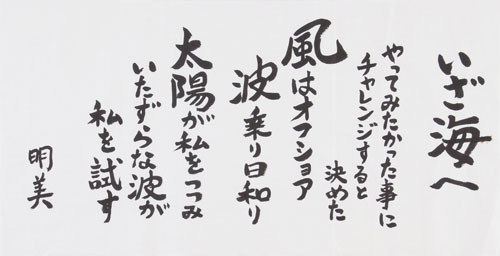 いざ海へ
やってみたかった事に
チャレンジすると
決めた
風はオフショア
波乗り日和り
太陽が私をつつみ
いたずらな波が
私を試す
明美